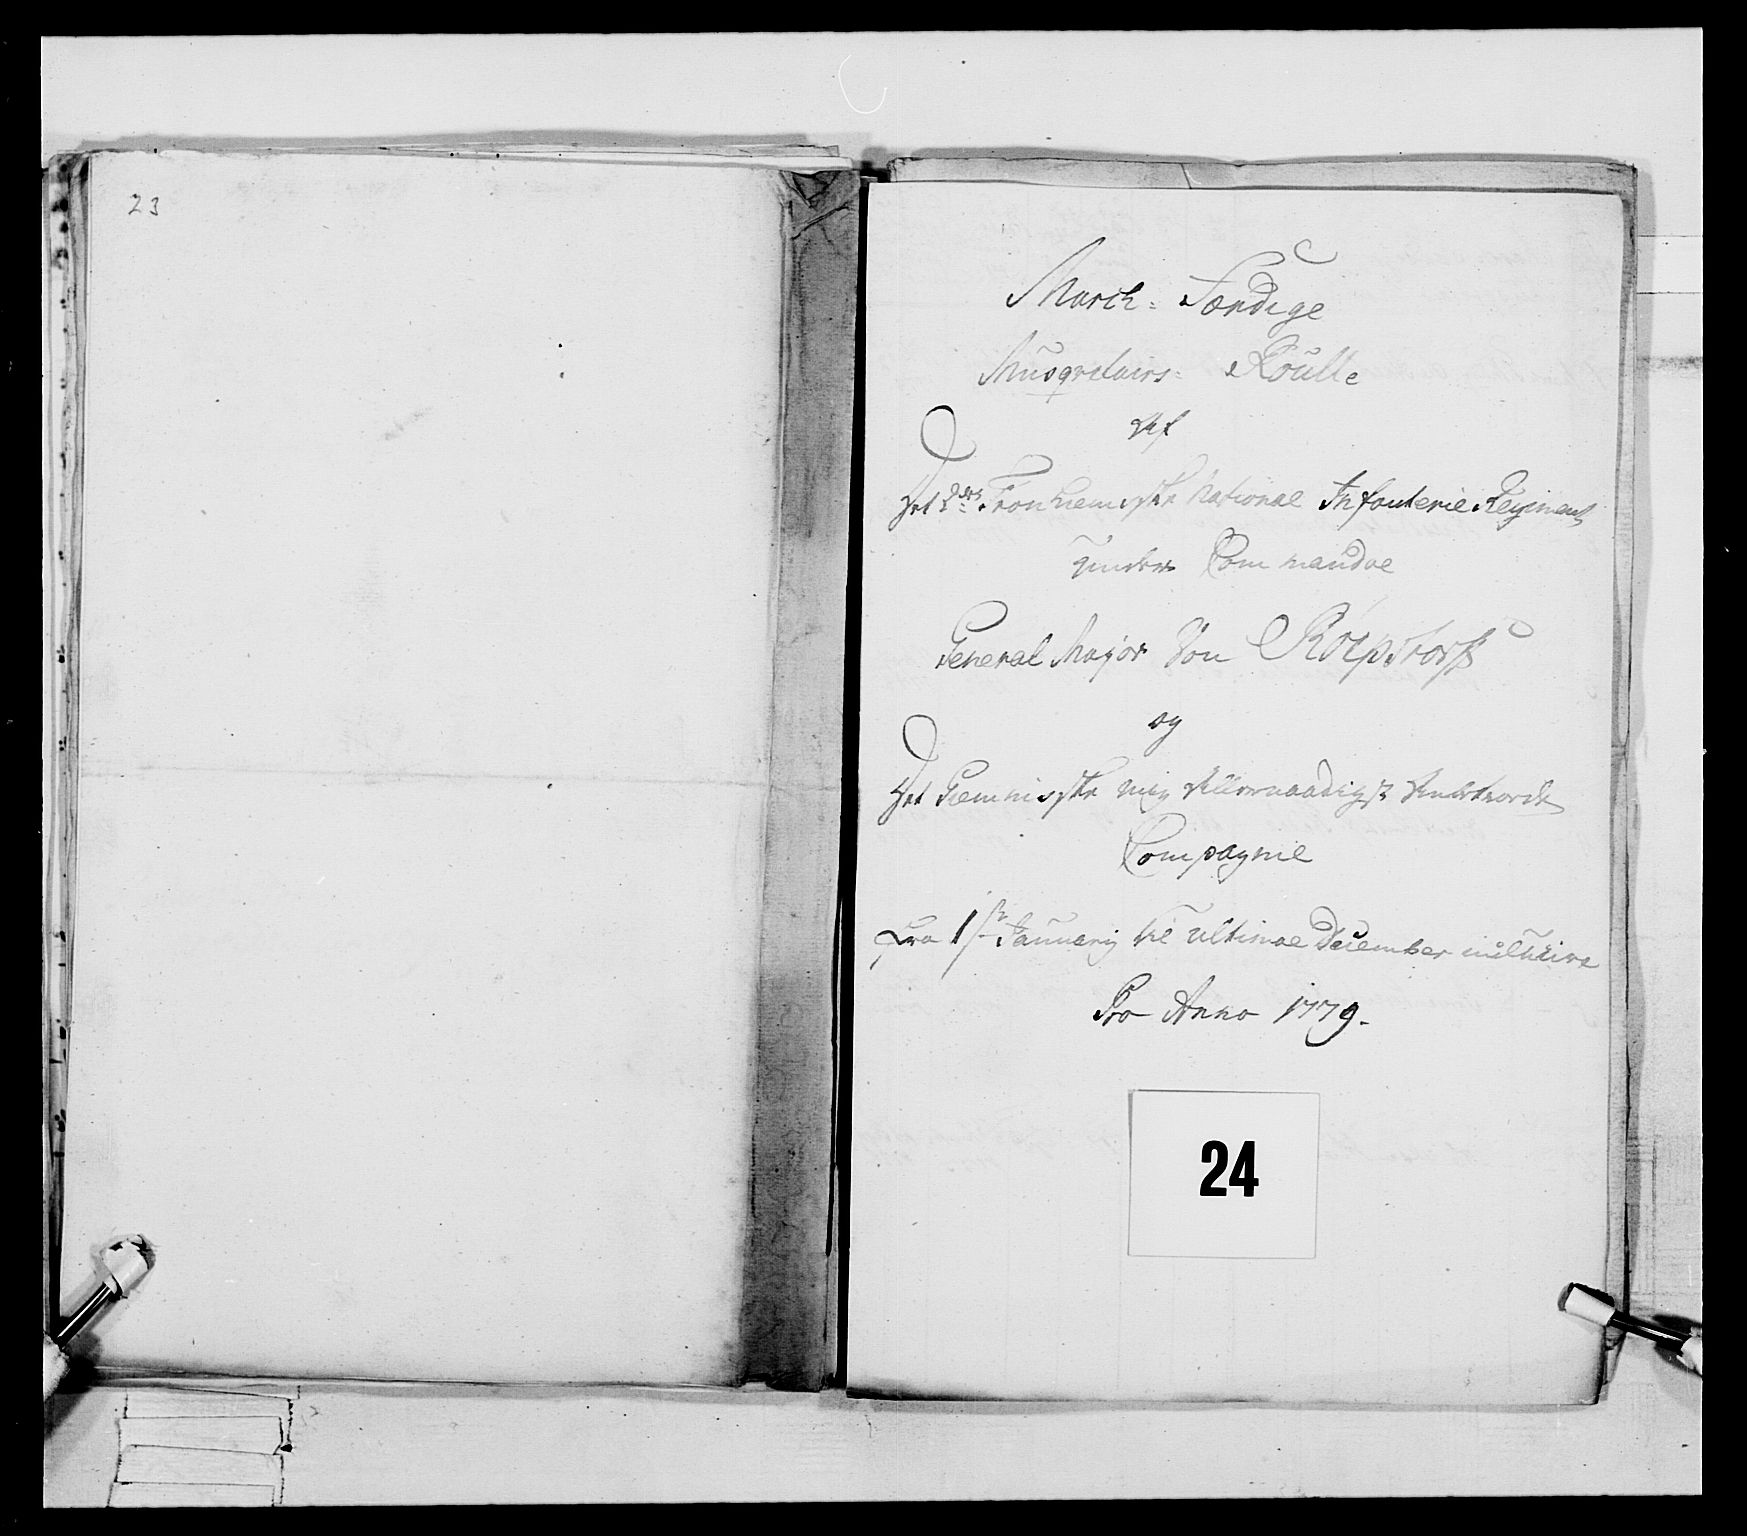 23
March- Færdige
Musqvetairs- Roulle
Af
Det 2det Tronhiemske National Infanterie Regiment
under Commandoe
General Major Von Röepstorff
og
Det mig Allernaadigst Anbetroede
Compagnie
Fra 1ste Januarij til ultimoe December incluusive
Pro Anno 1779.
24